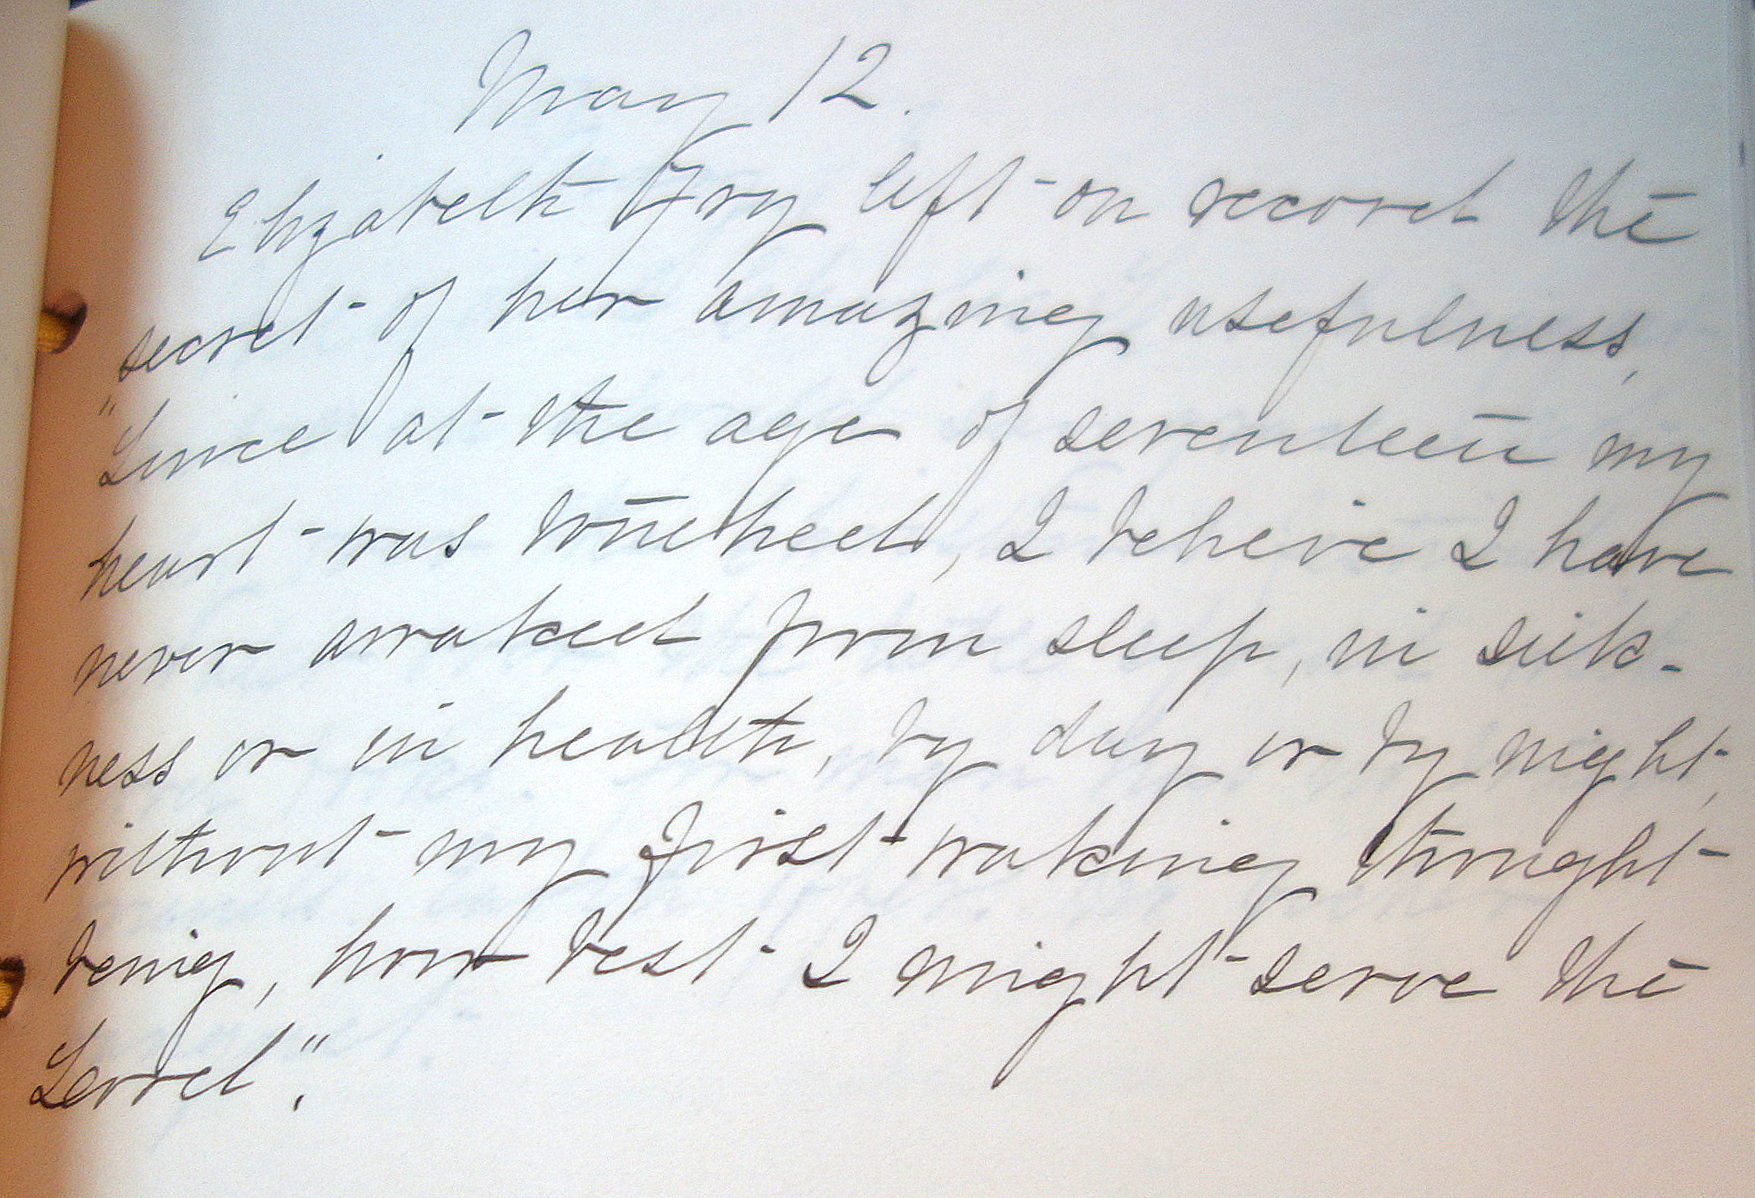 May 12.
Elizabeth Fry left on record the
secret of her amazing usefulness,
"Since at the age of seventeen my
heart was touched, I believe I have
never awaked from sleep, in sick-
ness or in health, by day or by night,
without my first waking thought
being, how best I might serve the
Lord".